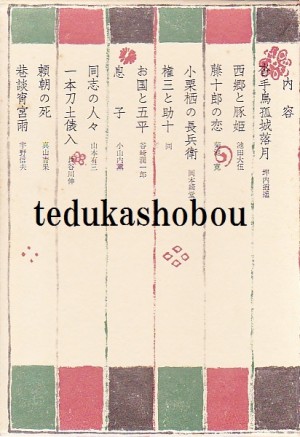 内容
手鳥孤城落月 坪内逍遥
西郷と豚姫 池田大伍
藤十郎の恋 寛
小栗栖の長兵衛 岡本綺堂
権三と助十 同
お国と五平 谷崎潤一郎
息子 小山内薫
同志の人々 山本有三
一本刀土俵入 長谷川伸
頼朝の死 真山青果
巷談宵宮雨 宇野信夫
tedukashobou